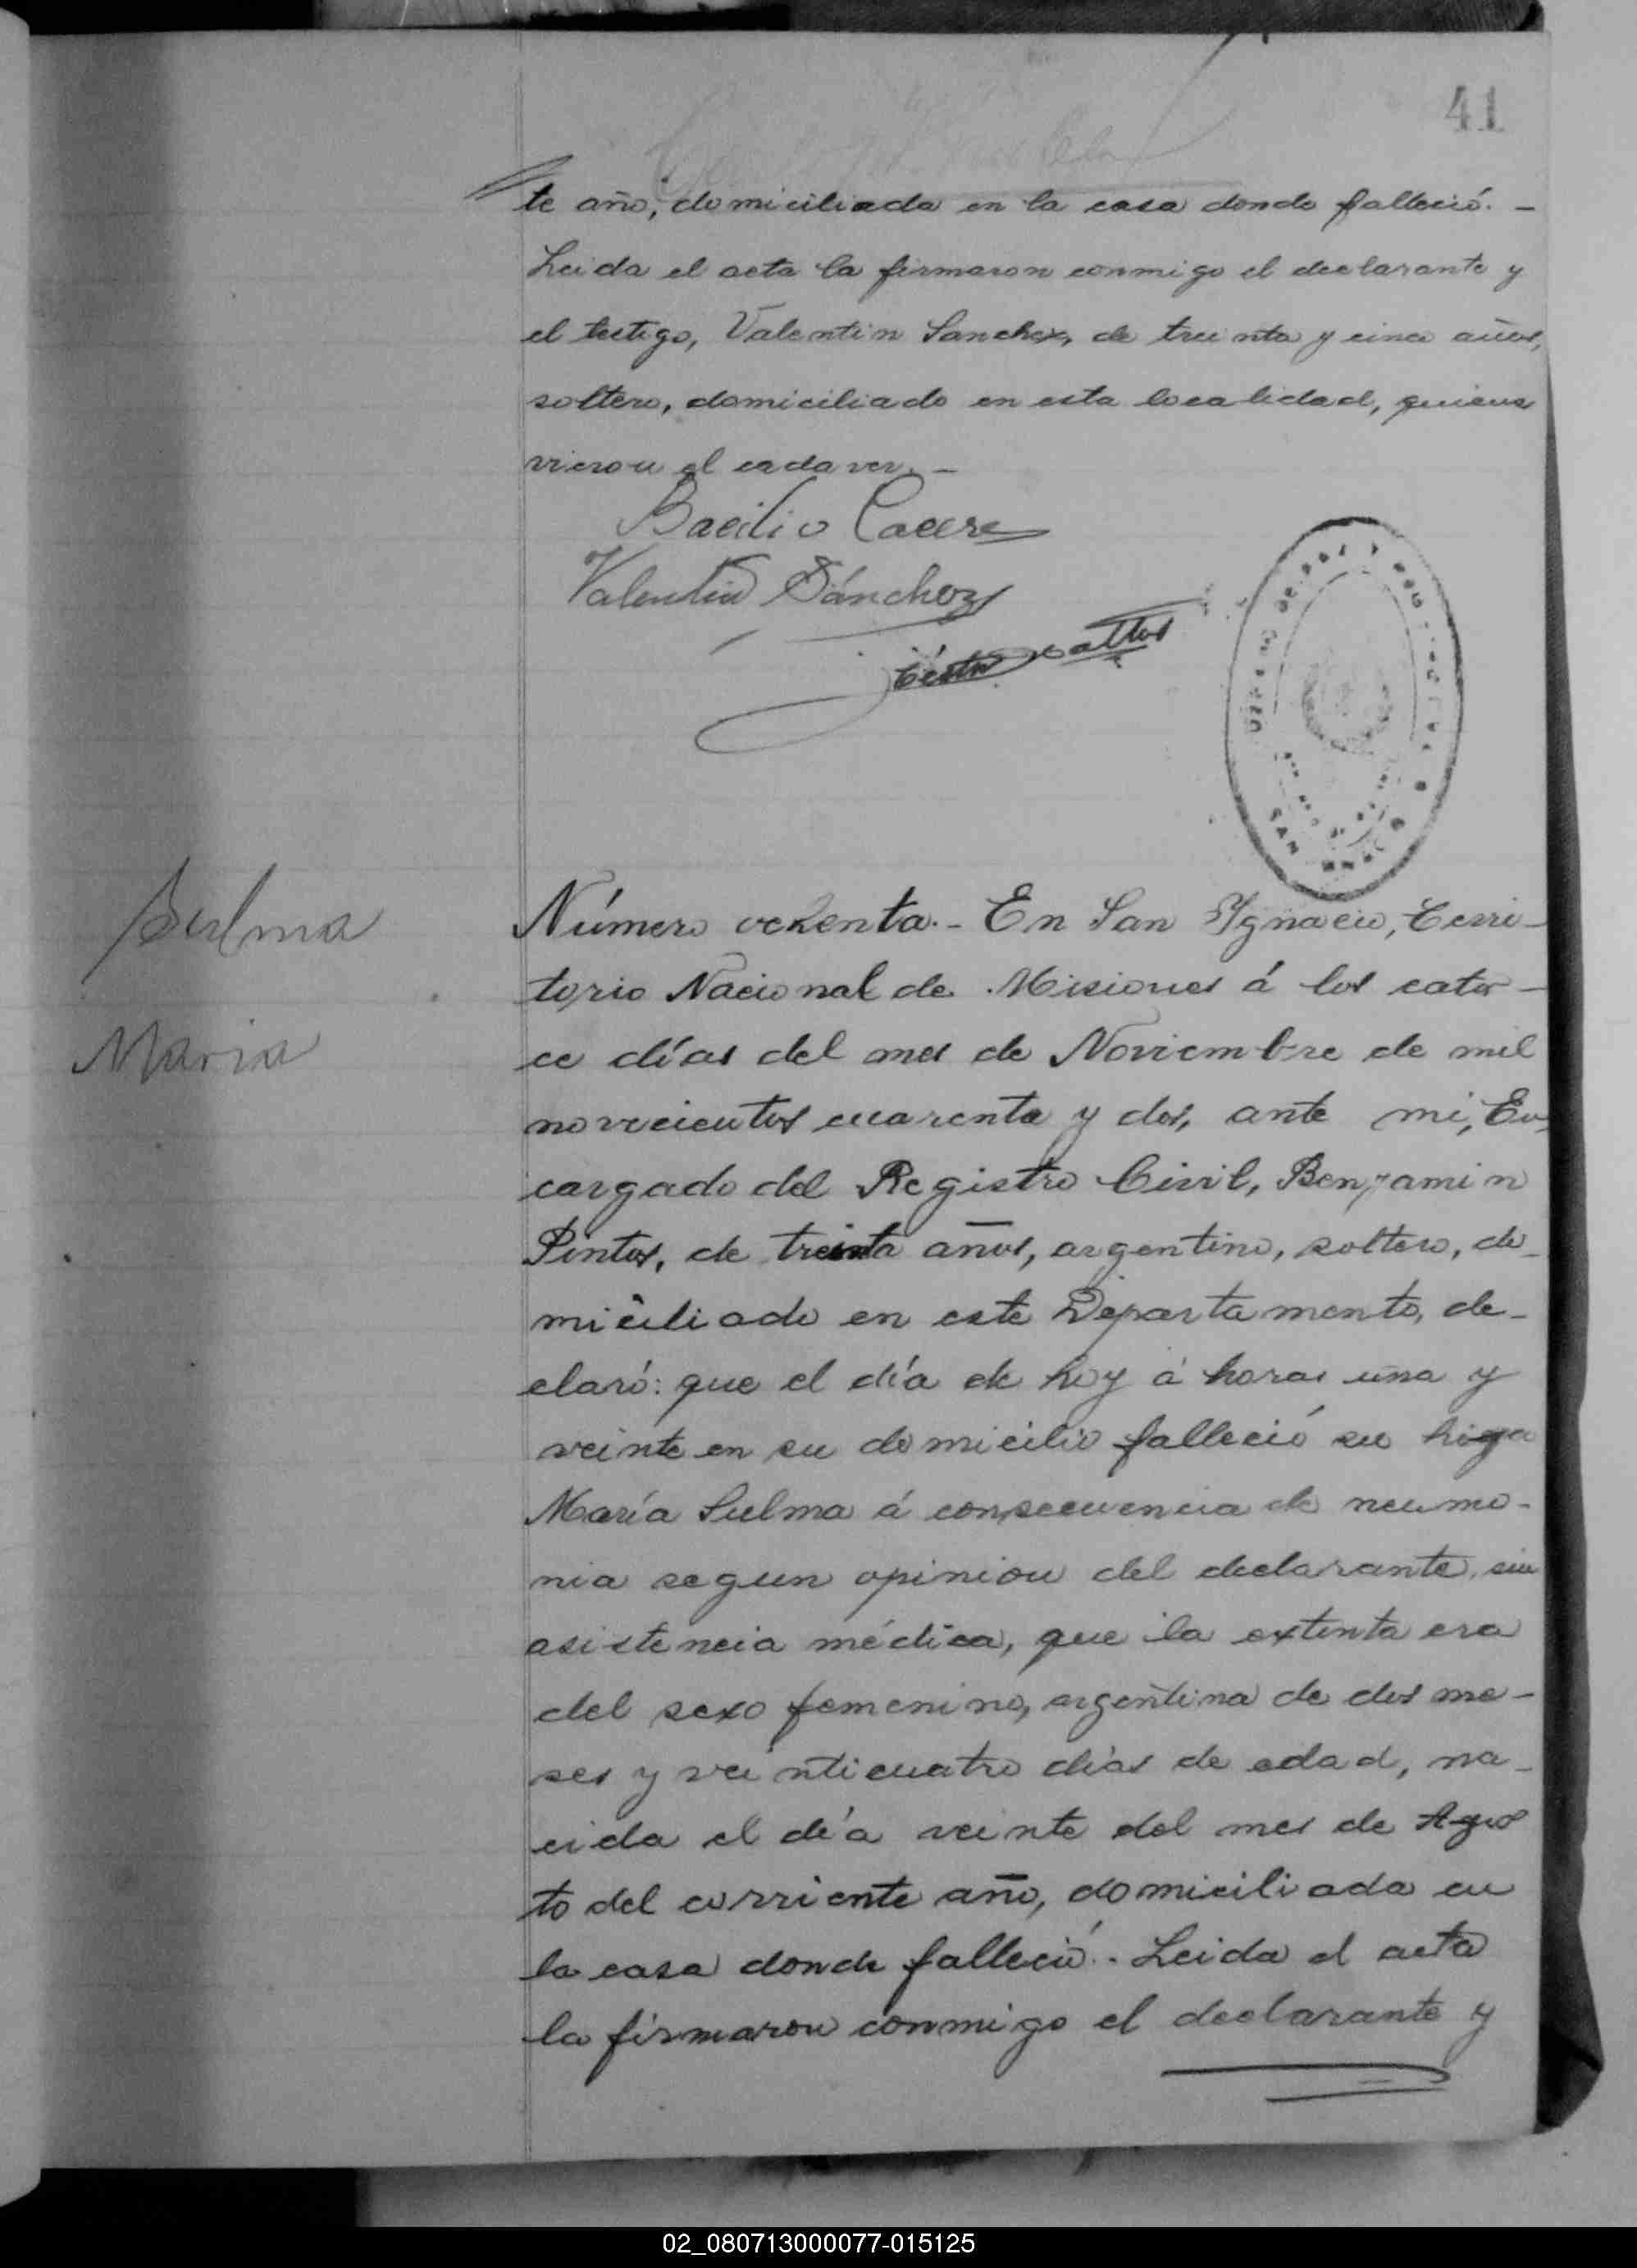 41
te año, domiciliada en la casa donde falleció. -
Leida el acta la firmaron conmigo el declarante y
el testigo, Valentin Sanchez, de treinta y cinco años,
soltero, domiciliado en esta localidad, quienes
vieron el cadaver. -
Bacilio Cacere
Valentin Sánchez
SAN
Sulma
Maria
Número ochenta. - En San Ygnacio, Terri-
torio Nacional de Misiones á los cator-
ce días del mes de Noviembre de mil
novecientos cuarenta y dos, ante mi, En-
cargado del Registro Civil, Benjamin
Pintos, de treinta años, argentino, soltero, do-
miciliado en este Departamento, de-
claró: que el día de hoy á horas una y
veinte en su domicilio falleció su higa
María Sulma á consecuencia de neumo-
nia segun opinion del declarante, sin
asistencia médica, que la extinta era
del sexo femenino, argentina de dos me-
ses y veinticuatro días de edad, na-
cida el día veinte del mes de Agos
to del corriente año, domiciliada en
la casa donde falleció. - Leida el acta
la firmaron conmigo el declarante y
02_080713000077-015125